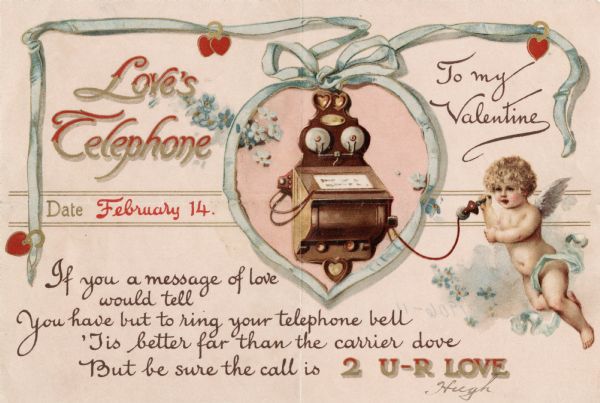 Love's
Telephone
To my
Valentine
Date February 14.
If you a message of love
would tell
You have but to ring your telephone bell
'Tis better far than the carrier dove
But be sure the call is 2 U-R LOVE
Hugh